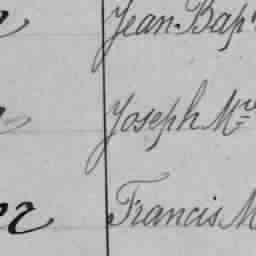 Jean-Bap
Joseph Mre
Francis M